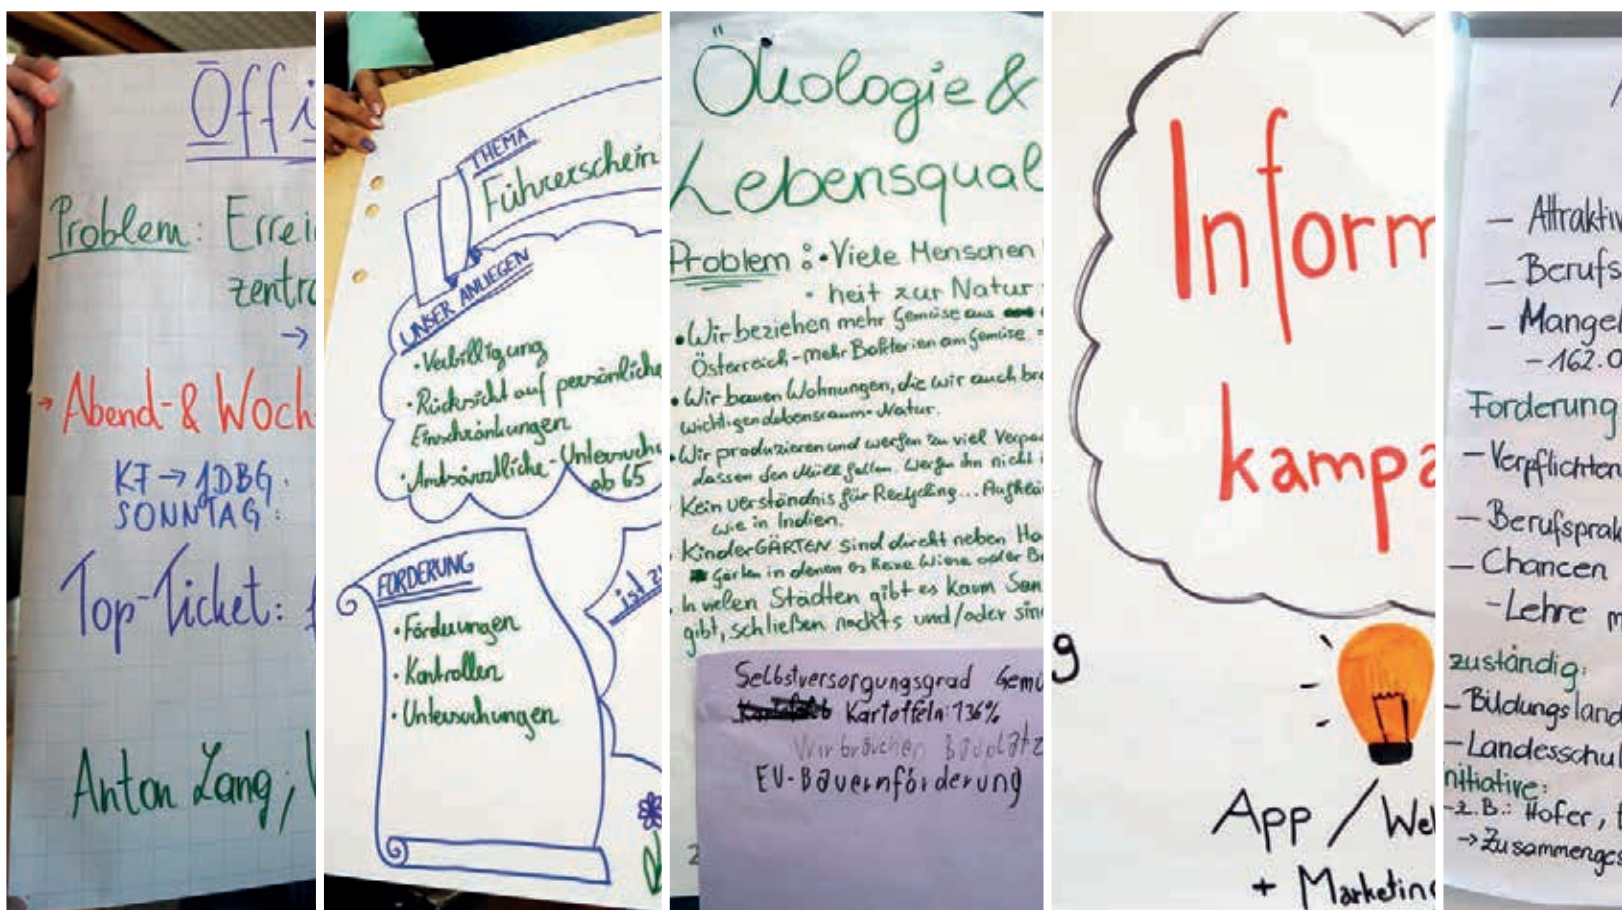 Öffi
Problem: Errei
zentra
→
→ Abend- & Woch
KF → 1DBG.
SONNTAG:
Top-Ticket:
Anton Lang;
THEMA
Führerschein
UNSER ANLIEGEN
• Verbilligung
• Rücksicht auf persönliche
Einschränkungen
• Amtsärztliche-Untersuchu
ab 65
FORDERUNG
• Förderungen
• Kontrollen
• Untersuchungen
ist zu
Ökologie &
Lebensqual
Problem: • Viele Menschen
• heit zur Natur
• Wir beziehen mehr Gemüse aus
Österreich - mehr Bakterien am Gemüse =
• Wir bauen Wohnungen, die wir auch bra
wichtigen Lebensraum - Natur.
• Wir produzieren und werfen zu viel Verpac
lassen den Müll fallen. Werfen ihn nicht
Kein Verständnis für Recycling... Aufklä
wie in Indien.
• KinderGÄRTEN sind direkt neben Ha
Gärten in denen es keine Wiese oder B
• In vielen Städten gibt es kaum San
gibt, schließen nachts und/oder sin
Selbstversorgungsgrad Gemü
Kartoffeln: 136%
Wir brauchen Badplätz
EU-Bauernförderung
Inform
kampa
g
App / We
+ Marketing
– Attraktiv
– Berufs
– Mangel
– 162.0
Forderung
– Verpflichten
– Berufsprak
– Chancen
– Lehre m
zuständig:
– Bildungsland
– Landesschul
nitiative:
– z.B.: Hofer,
→ Zusammenges